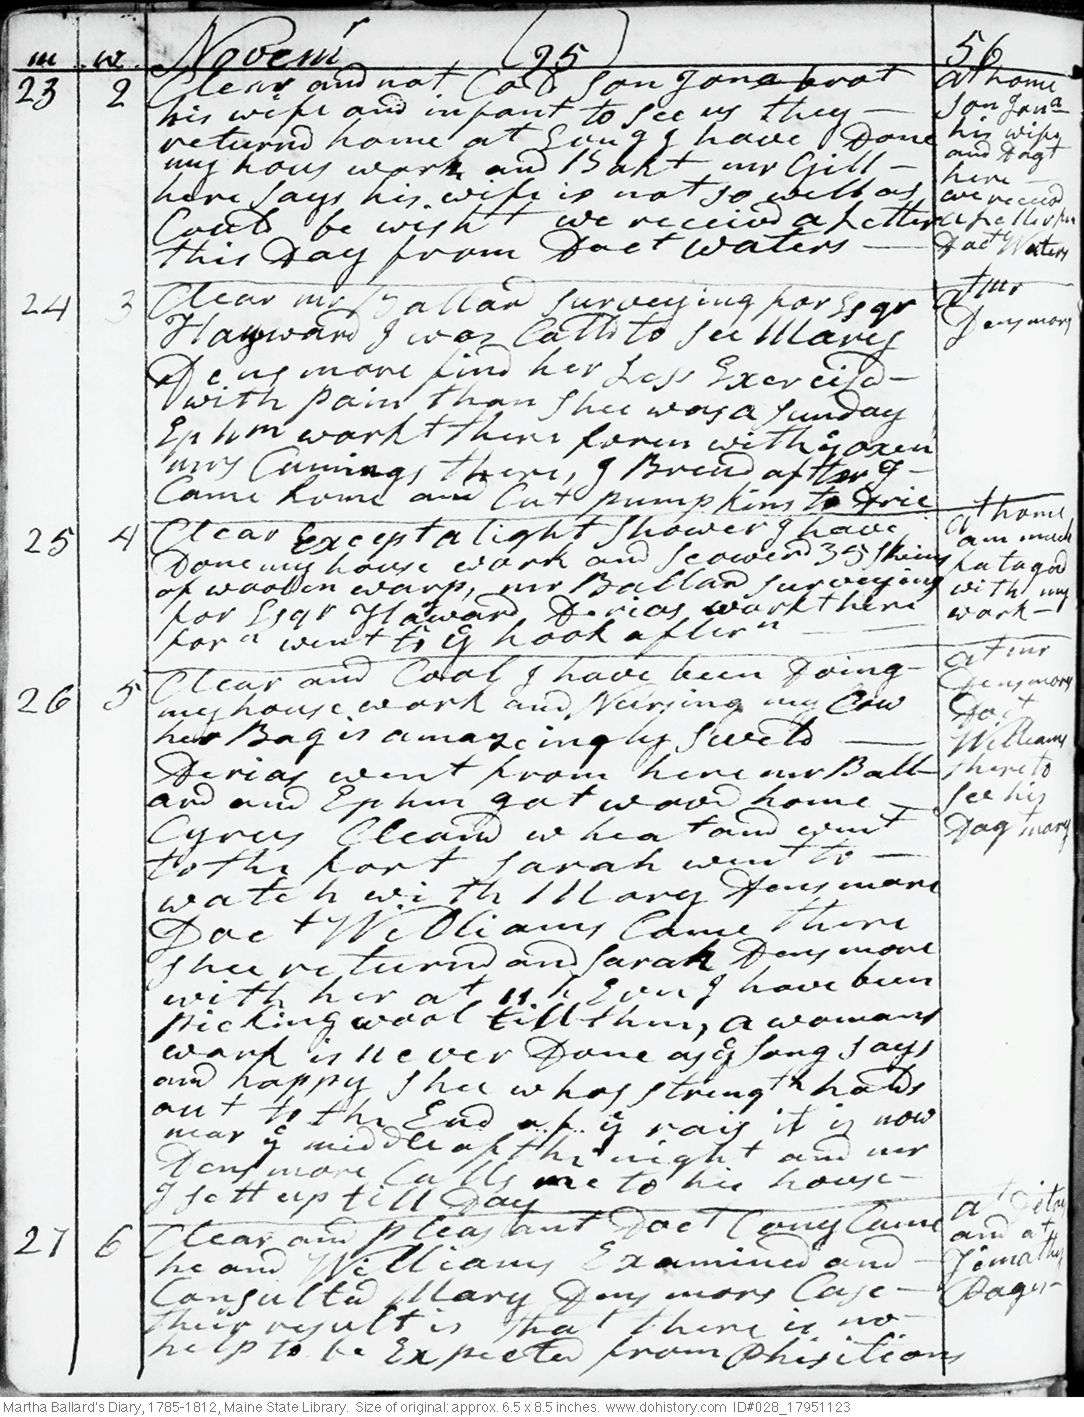 m w Novem^r (25) 56
23 2 Clear and not Cold Son Jona brot
his wife and infant to see us they —
returnd home at Evng I have Done
my hous work and Bakt mr Gill —
here Says his wife is not so well as
Could be wisht we receivd a Letter
this Day from Doct Waters —
at home
Son Jona
his wife
and Dagt
here —
we receivd
a Letter frm
Doct Waters
24 3 Clear mr Ballard Surveying for Esqr
Hayward I was Calld to See Mary
Densmore find her Less Exercisd —
with pain than Shee was a Sunday
Ephm workt there foren with 4 oxen
mrs Cumings there, I Brewd aftern I —
Came home and Cut pumpkins to Drie
at mr
Densmors
25 4 Clear Except a light Shower I have
Done my house work and Scowerd 35 Skeins
of woolen warp, mr Ballard Surveying
for Esqr Haward Derias workt here
forn went to ye hook aftern —
at home
am much
fatagud
with my
work —
26 5 Clear and Cool I have been Doing —
my house work and Nursing my Cow
her Bag is amazeingly Sweld —
Derias went from here mr Ball-
ard and Ephm got wood home —
Cyrus Cleand wheat and went
to the fort Sarah went to —
watch with Mary Densmore
Doct Williams Came there
Shee returnd and Sarah Densmore
with her at 11 h Evn I have been
picking wool till then, a womans
work is never Done as ye Song Says
and happy Shee whos Strength holds
out to the End of ye rais it is now
near ye middle of the night and mr
Densmore Calls me to his house —
I Sett up till Day
at mr
Densmors
Doct
Williams
there to
See his
Dagt mary
27 6 Clear and pleastant Doct Cony Came
he and Williams Examined and —
Consulted Mary Densmors Case —
their result is that there is no —
help to be Expected from Phisitions
at Ditoes
and at
Timothy
Pages —
Martha Ballard's Diary, 1785-1812, Maine State Library. Size of original: approx. 6.5 x 8.5 inches. www.dohistory.com ID#028_17951123